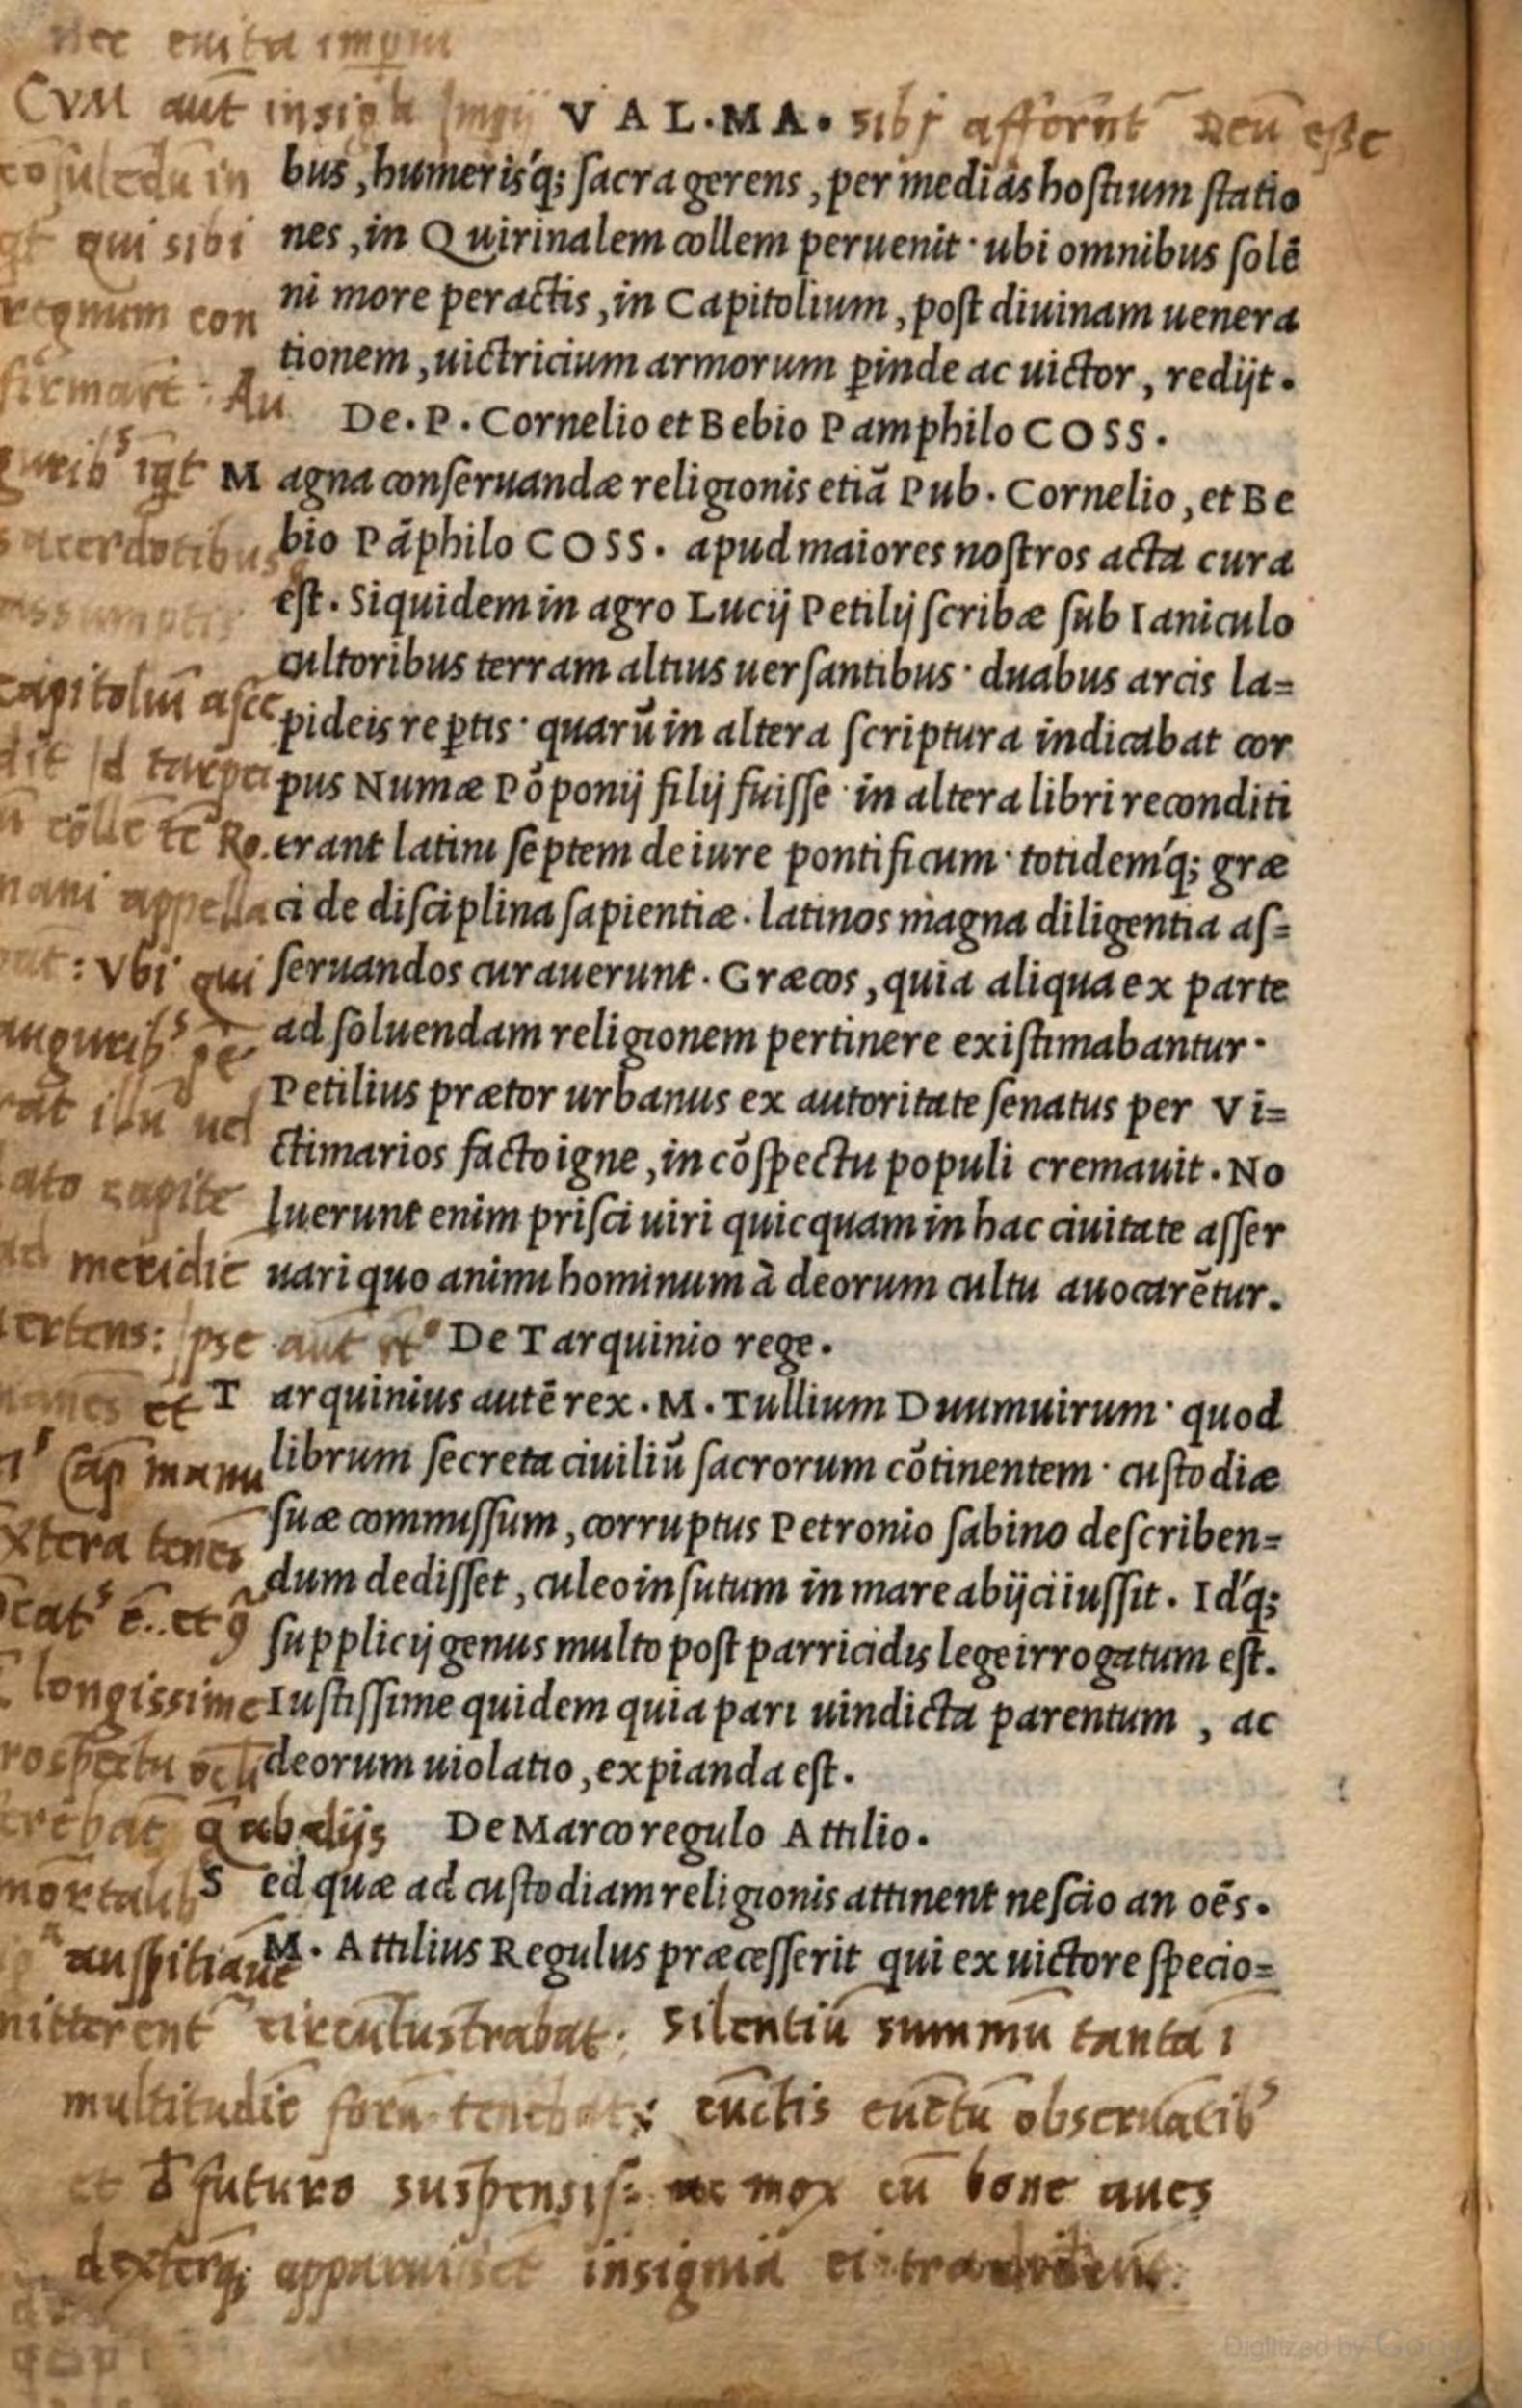 nec
CVM aut insigh sibj afforñt Deū esse
VAL.MA.
bus, humeris'q; sacra gerens, per medias hostium statio
nes, in Quirinalem collem peruenit· ubi omnibus solē
ni more peractis, in Capitolium, post diuinam uenera
tionem, uictricium armorum ꝑinde ac uictor, redijt.
De. P. Cornelio et Bebio Pamphilo COSS.
Magna conseruandæ religionis etiā Pub. Cornelio, et Be
bio Pāphilo COSS. apud maiores nostros acta cura
est. Siquidem in agro Lucij Petilij scribæ sub Ianiculo
cultoribus terram altius uersantibus· duabus arcis la=
pideis reꝑtis· quarū in altera scriptura indicabat cor
pus Numæ Pōponij filij fuisse· in altera libri reconditi
erant latini septem de iure pontificum· totidem'q; græ
ci de disciplina sapientiæ. latinos magna diligentia as=
seruandos curauerunt. Græcos, quia aliqua ex parte
ad soluendam religionem pertinere existimabantur·
Petilius prætor urbanus ex autoritate senatus per Vi=
ctimarios facto igne, in cōspectu populi cremauit. No
luerunt enim prisci uiri quicquam in hac ciuitate asser
uari quo animi hominum à deorum cultu auocarētur.
De Tarquinio rege.
Tarquinius autē rex. M. Tullium Duumuirum· quod
librum secreta ciuiliū sacrorum cōtinentem· custodiæ
suæ commissum, corruptus Petronio sabino describen=
dum dedisset, culeo insutum in mare abijci iussit. Id'q;
supplicij genus multo post parricidis lege irrogatum est.
Iustissime quidem quia pari uindicta parentum, ac
deorum uiolatio, expianda est.
De Marco regulo Attilio.
Sed quæ ad custodiam religionis attinent nescio an oēs.
M. Attilius Regulus præcesserit qui ex uictore specio=
cōsulēdū in
qui sibi
regnum con
firmarēt: Au
guribs igt
sacerdotibus
assumptis
capitoliū ascē
dit Id tarpei
ū collē tē Ro.
mani appella
ūt: Vbi qui
auguribs
cāt illū uel
lato capite
ad meridiē
uertens: Ipse aut
manēs et
cāp manu
extera tenēs
ē.. et
longissime
prospectu ocli
ferebāt
mortalib
auspitia
mitterent circūlustrabat: Silentiū summū tanta ī
multitudīē forū tenebat: cūctis euētū obseruātibs
et đ futuro suspensis: ac mox cū bone aues
dexterq; apparuissēt insignia ei
Digitized by Google